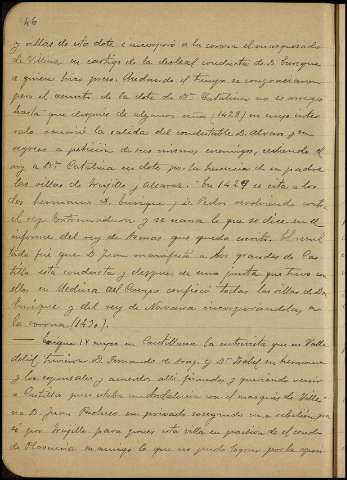 46
y villas de esta dote e incorporó a la corona el marquesado
de Villena en castigo de la desleal conducta de D. Enrique
a quien hizo preso. Andando el tiempo se congraciaron
pero el asunto de la dote de Dª Catalina no se arregló
hasta que después de algunos años (1428) en cuyo inter
valo ocurrió la caida del condestable D. Alvaro y su
regreso a petición de sus mismos enemigos, cediendo el
rey a Dª Catalina en dote por la herencia de su padre
las villas de Trujillo y Alcaraz. En 1429 se cita a los
dos hermanos D. Enrique y D. Pedro revolviendo contra
el rey Extremadura y se narra lo que se dice en el
informe del rey de Armas que queda escrito. El resul
tado fué que D. Juan manifestó a los grandes de Cas
tilla esta conducta y después de una junta que tuvo con
ellos en Medina del Campo confiscó todas las villas de Don
Enrique y del rey de Navarra incorporandolas a
la corona (1430).
— Parque IX expuso en Castilla la entrevista que en Valla
dolid tuvieron D. Fernando de Arag. y Dª Isabel su hermana
y los esponsales y acuerdos allí firmados, y queriendo venir
a Castilla pues estaba en Andalucia con el marqués de Ville-
na D. Juan Pacheco su privado sosegando una rebelión pa
só por Trujillo para poner esta villa en posesión de el conde
de Plasencia su amigo lo que no pudo lograr por la oposi